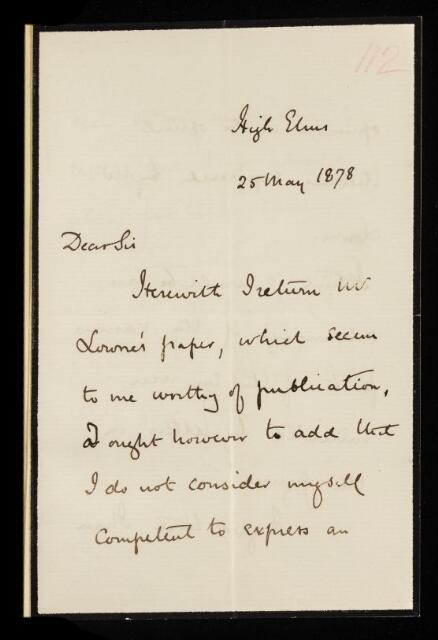 112
High Elms
25 May 1878
Dear Sir
Herewith I return Mr
Lowne's paper, which seem
to me worthy of publication,
I ought however to add that
I do not consider myself
competent to express an